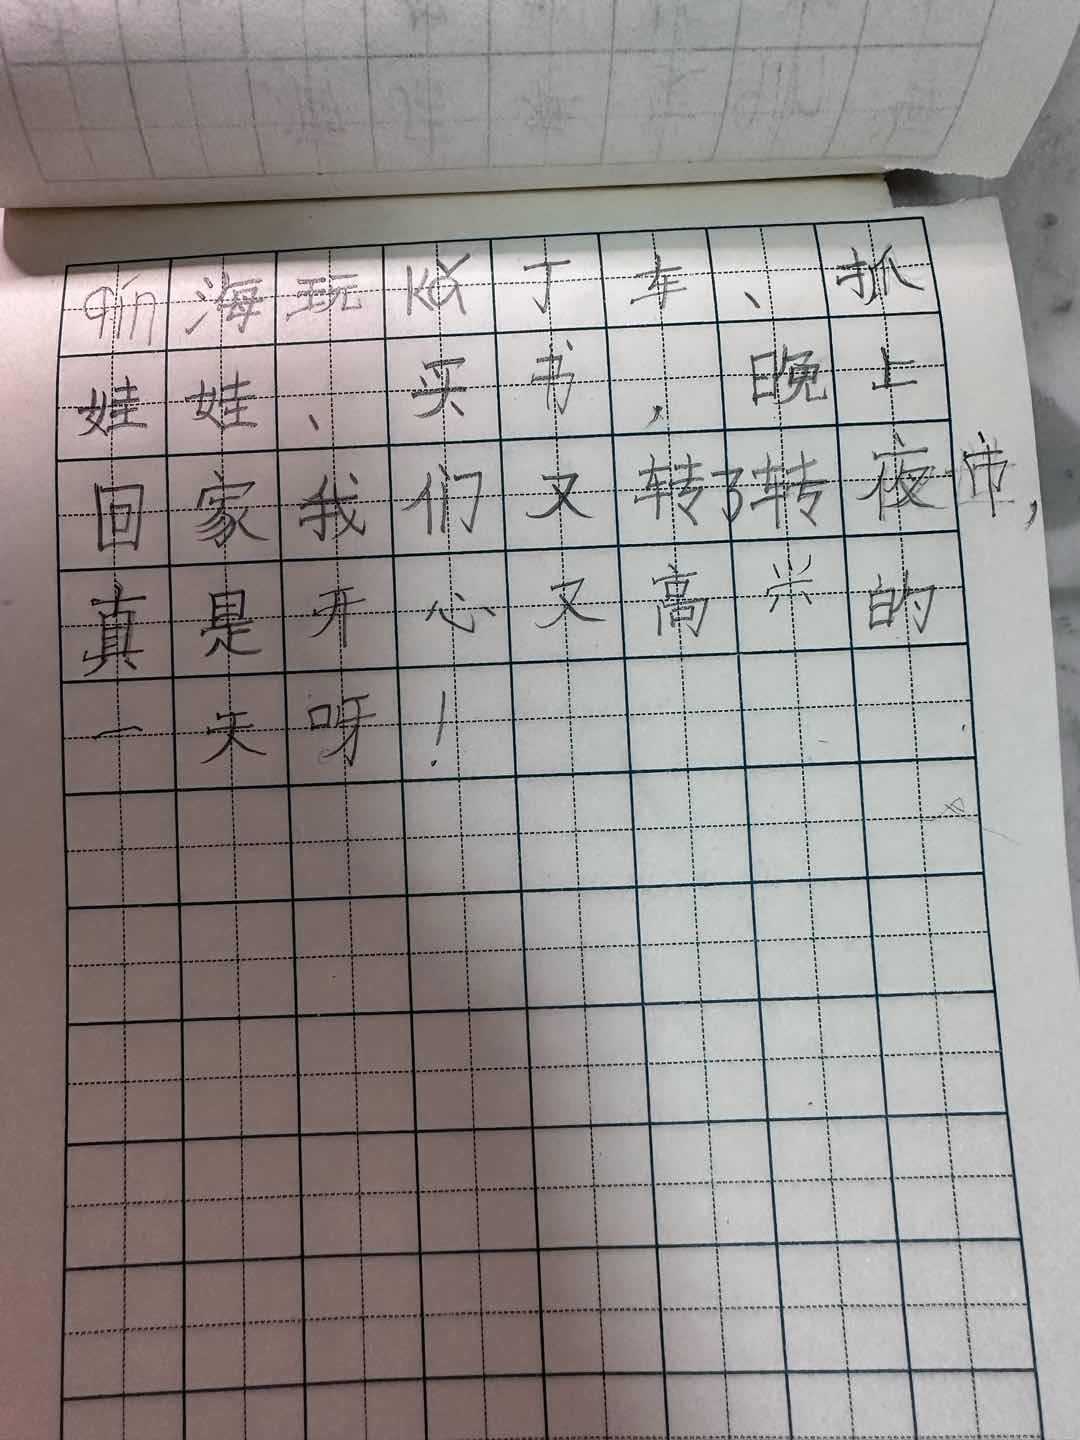 qín海玩kǎ丁车、抓
娃娃、买书,晚上
回家我们又转了转夜市,
真是开心又高兴的
一天呀!